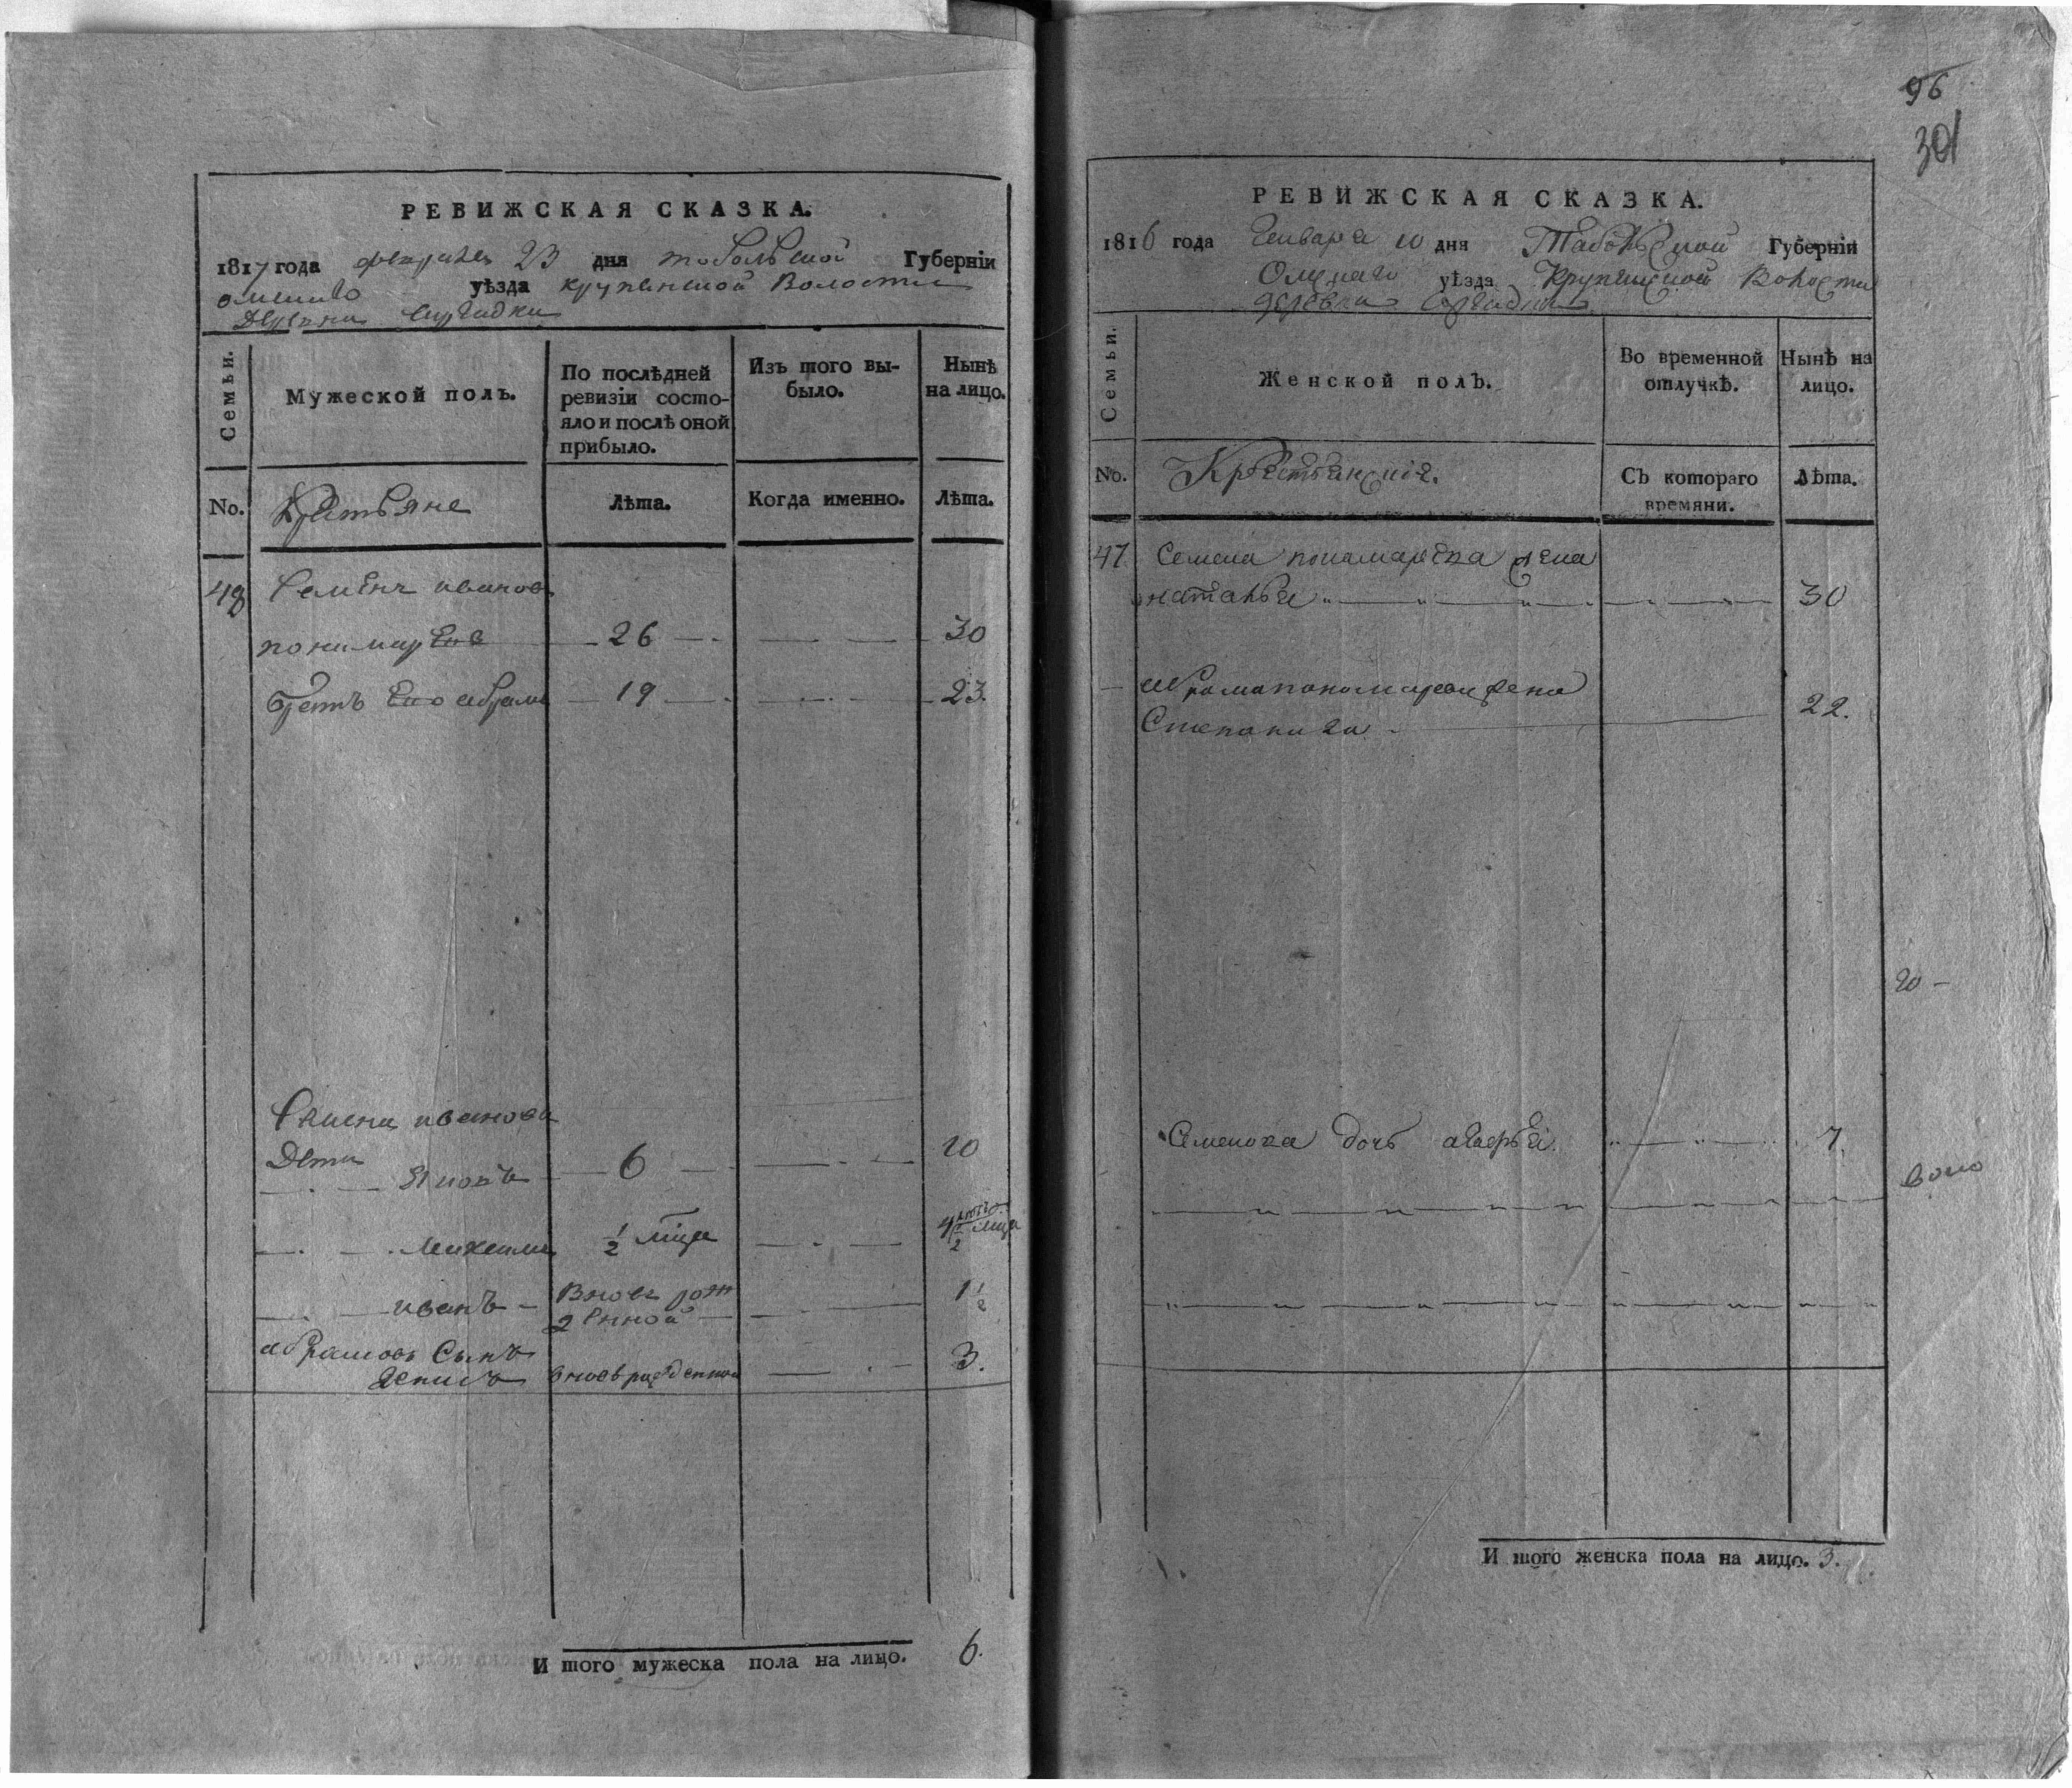 РЕВИЖСКАЯ СКАЗКА.
1817 года февраля 23 дня тобольской Губерніи
омскаго уѣзда крупенской Волости
Деревни Сыргадки
Семьи.
Мужеской полъ.
По послѣдней ревизіи состо-
яло и послѣ оной прибыло.
Изъ того вы-
было.
Нынѣ
на лицо.
No.
Крестьяне
Лѣта.
Когда именно.
Лѣта.
48 Семенъ иванов
понамарев 26 30
братъ Ево абрамъ 19 23.
Семена иванова
Дети
6 10
½ мца
иванъ Вновь рож
денной 1½
абрамовъ Сынъ
денисъ вновь рожденной 3.
И того мужеска пола на лицо. 6.
96
301
РЕВИЖСКАЯ СКАЗКА.
1816 года Генваря 10 дня Табольской Губерніи
Омскаго уѣзда Крупенской Волости
деревни Сыргадки
Семьи.
Женской полъ.
Во временной
отлучкѣ.
Нынѣ на
лицо.
No.
Крестьянскія.
Съ котораго
времяни.
Лѣта.
47. Семена понамарева жена
наталья 30
абрама понамарева жена
Степанида 22.
Семенова дочь 7
И того женска пола на лицо. 3.